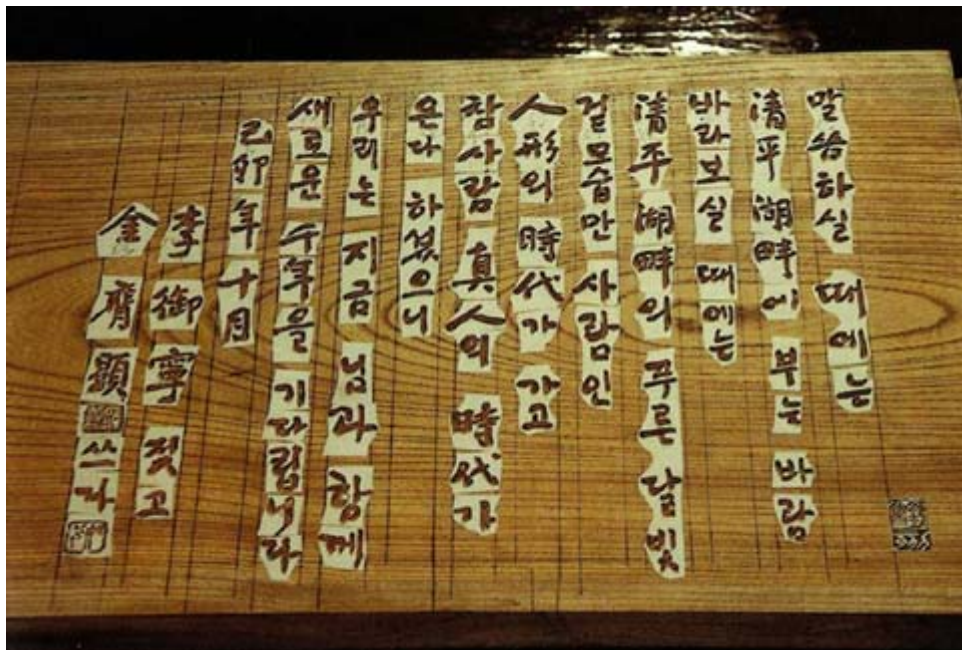 말씀하실 때에는
清平 湖畔에 부는 바람
바라보실 때에는
清平 湖畔의 푸른 달빛
겉모습만 사람인
人形의 時代가 가고
참사람 真人의 時代가
온다 하셨으니
우리는 지금 님과 함께
새로운 千年을 기다립니다
己卯年 十月
李御寧 짓고
金膺顯 쓰다